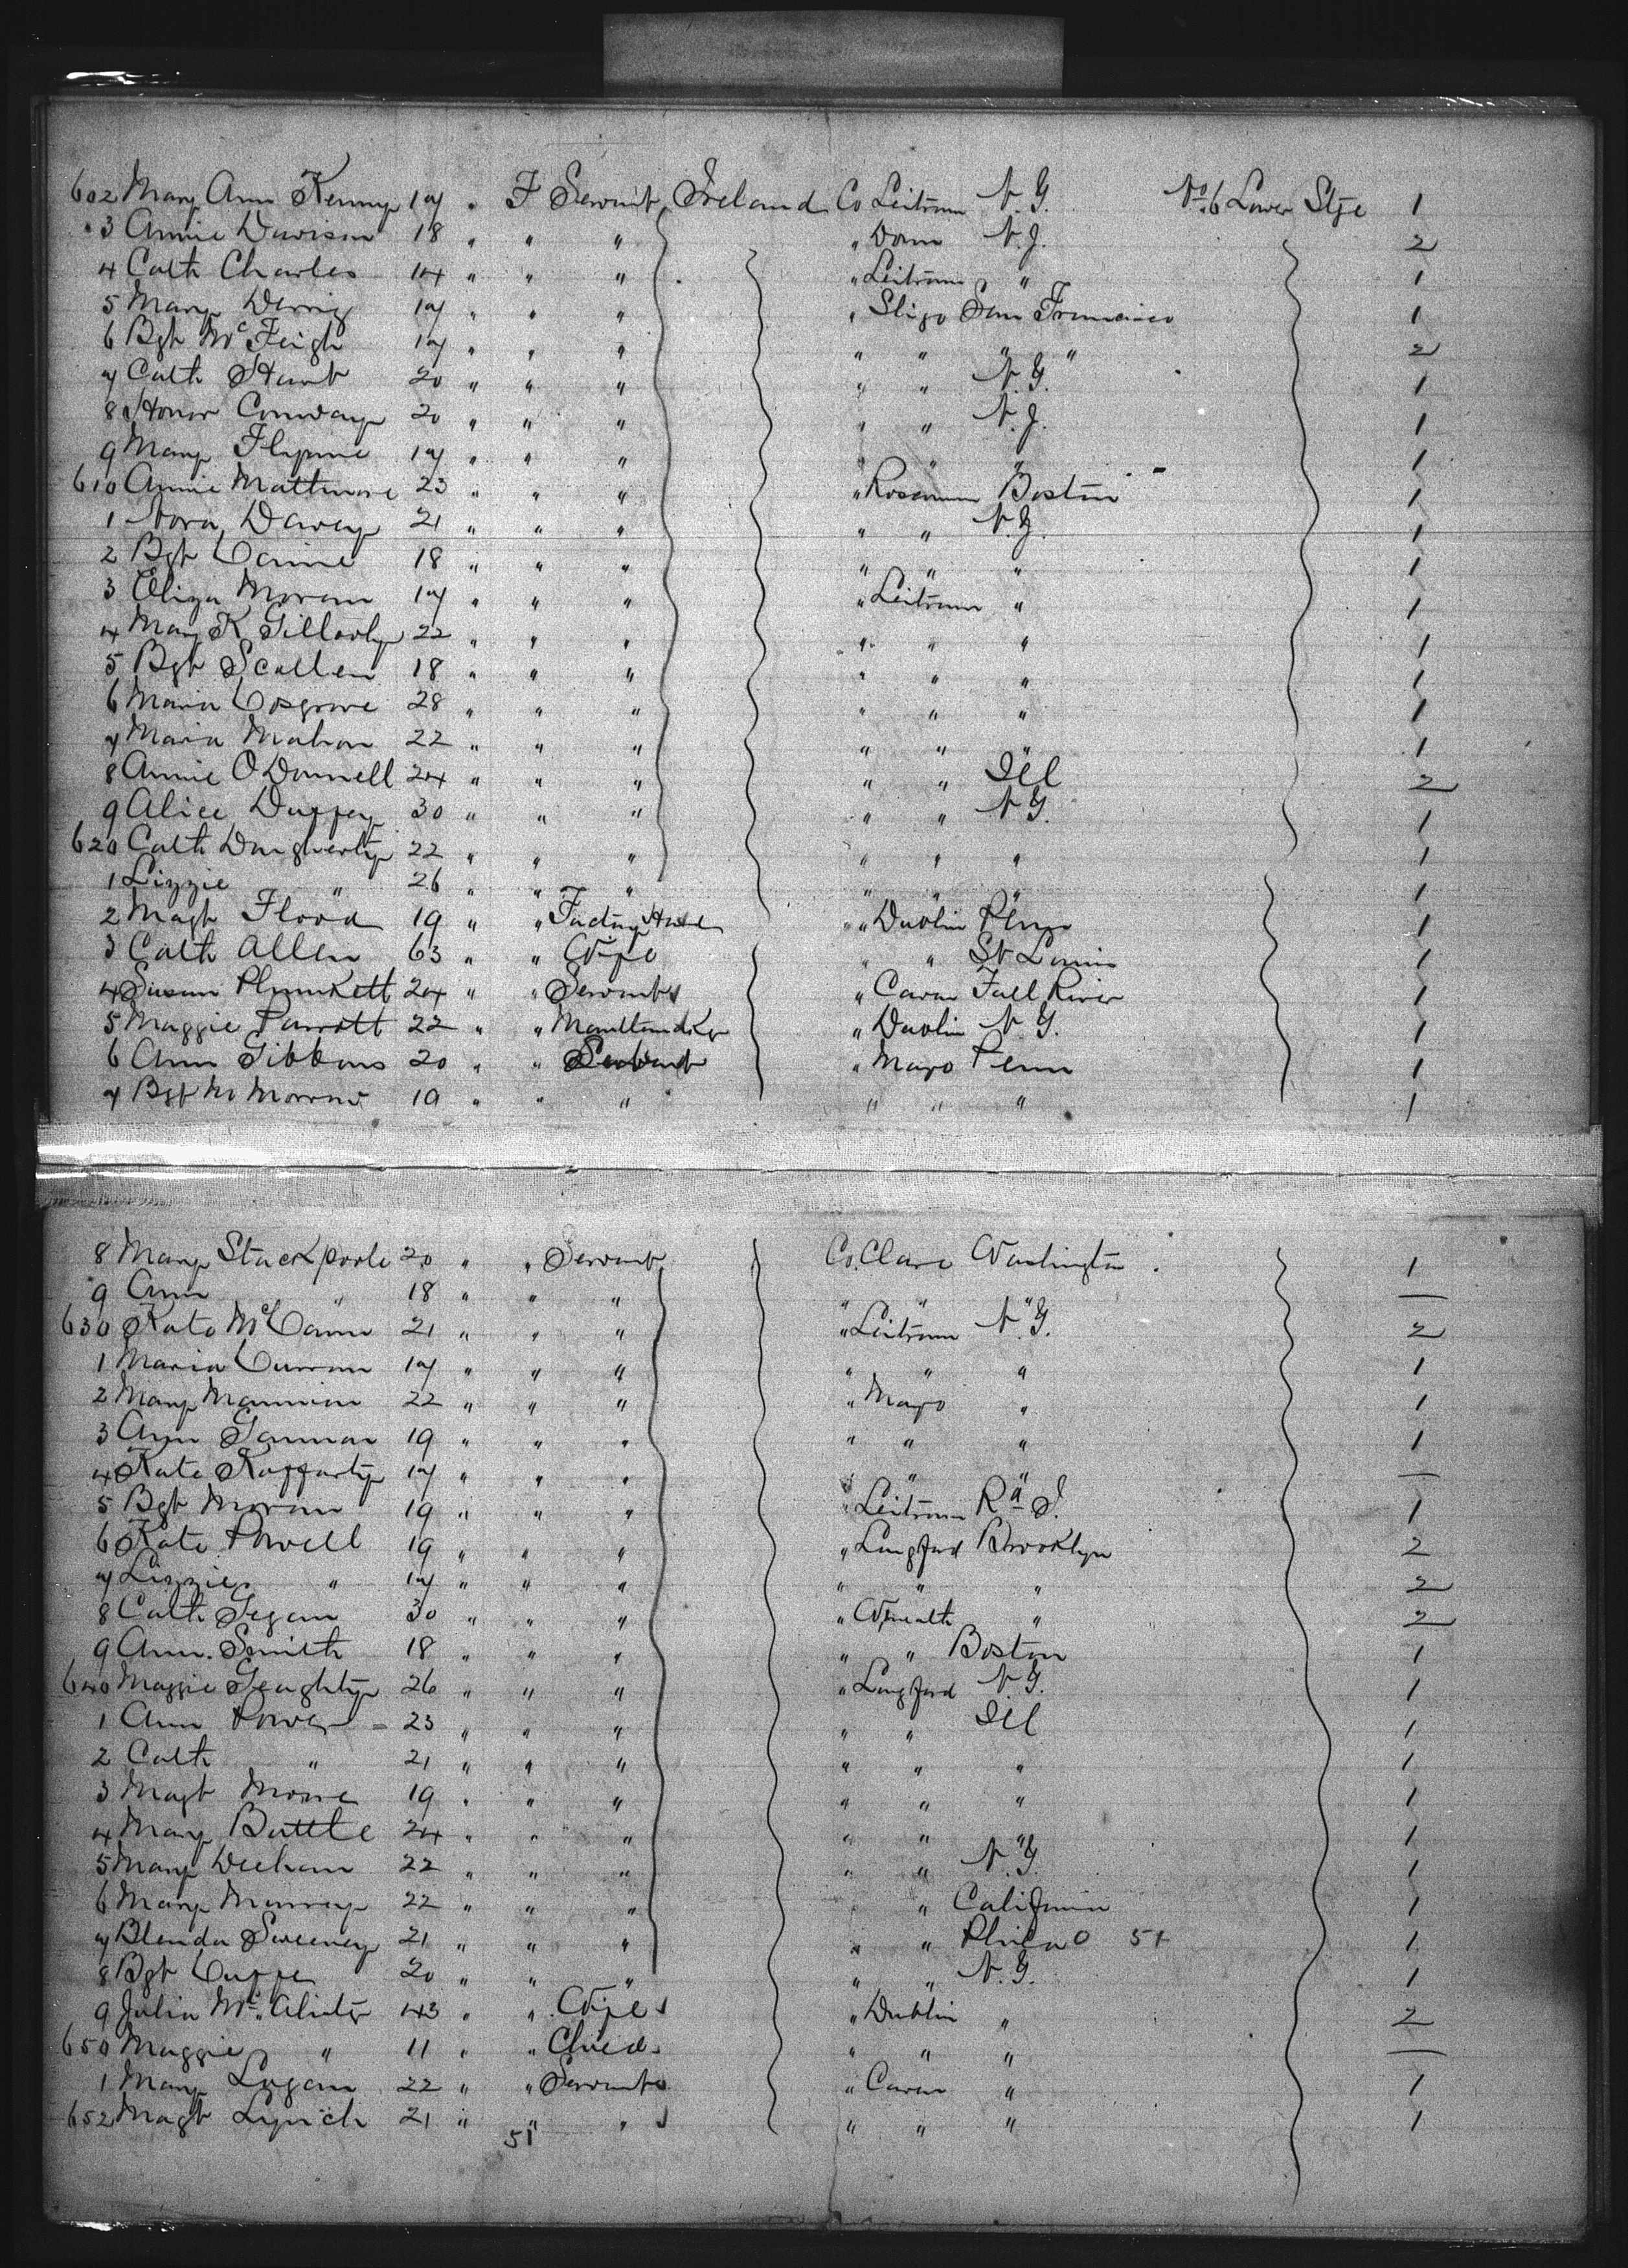 602 Mary Ann Kenny 17 " F Servant Ireland Co Leitrim N.Y. No 6 Lower Stge 1
3 Annie Davison 18 " " " " Down N.J. 2
4 Cath Charles 14 " " " " Leitrim " 1
5 Mary Derrig 17 " " " " Sligo San Francisco 1
6 Bgt McFeigh 17 " " " " " " " 2
7 Cath 20 " " " " " N.Y. 1
8 Honor Conway 20 " " " " " N.J. 1
9 Mary Flynne 17 " " " " " " 1
610 Annie 23 " " " " Roscommon Boston 1
1 Nora Davey 21 " " " " " N.Y. 1
2 Bgt 18 " " " " " " 1
3 Eliza Moran 17 " " " " Leitrim " 1
4 Mary K Gillooly 22 " " " " " " 1
5 Bgt Scallen 18 " " " " " " 1
6 Maria Cosgrove 28 " " " " " " 1
7 Maria Mahon 22 " " " " " " 1
8 Annie O Donnell 24 " " " " " Ill 2
9 Alice Duffey 30 " " " " " N.Y. 1
620 Cath Daugherty 22 " " " " " " 1
1 Lizzie " 26 " " " " " " 1
2 Magt Flood 19 " " Factory Hand " Dublin 1
3 Cath Allen 63 " " Wife " " St Louis 1
4 Susan Plunkett 24 " " Servant " Cavan Fall River 1
5 Maggie Parrott 22 " " " Dublin N.Y. 1
6 Ann Gibbons 20 " " Servant " Mayo Penn 1
7 Bgt Mc Morrow 19 " " " " " " 1
8 Mary Stackpoole 20 " " Servant Co. Clare Washington 1
9 Ann " 18 " " " " " " —
630 Kate McCann 21 " " " " Leitrim N.Y. 2
1 Maria Curran 17 " " " " " " 1
2 Mary Mannion 22 " " " " Mayo " 1
3 Ann Gannon 19 " " " " " " 1
4 Kate Raffarty 17 " " " " " " —
5 Bgt Moran 19 " " " " Leitrim Rd I. 1
6 Kate Powell 19 " " " " Longford Brooklyn 2
7 Lizzie " 17 " " " " " " 2
8 Cath Gegan 30 " " " " Wmeath " 2
9 Ann Smith 18 " " " " " Boston 1
640 Maggie Geaghty 26 " " " " Longford N.Y. 1
1 Ann Power 23 " " " " " Ill 1
2 Cath " 21 " " " " " " 1
3 Magt Moore 19 " " " " " " 1
4 Mary Battle 24 " " " " " " 1
5 Mary Meehan 22 " " " " " N.Y. 1
6 Mary Murray 22 " " " " " California 1
7 Blenda Sweeney 21 " " " " " Phila 51 1
8 Bgt Cuffe 20 " " " " " N.Y. 1
9 Julia 43 " " Wife " Dublin " 2
650 Maggie " 11 " " Child " " " —
1 Mary Logan 22 " " Servant " Cavan " 1
652 Magt Lynch 21 " " " " " " 1
51